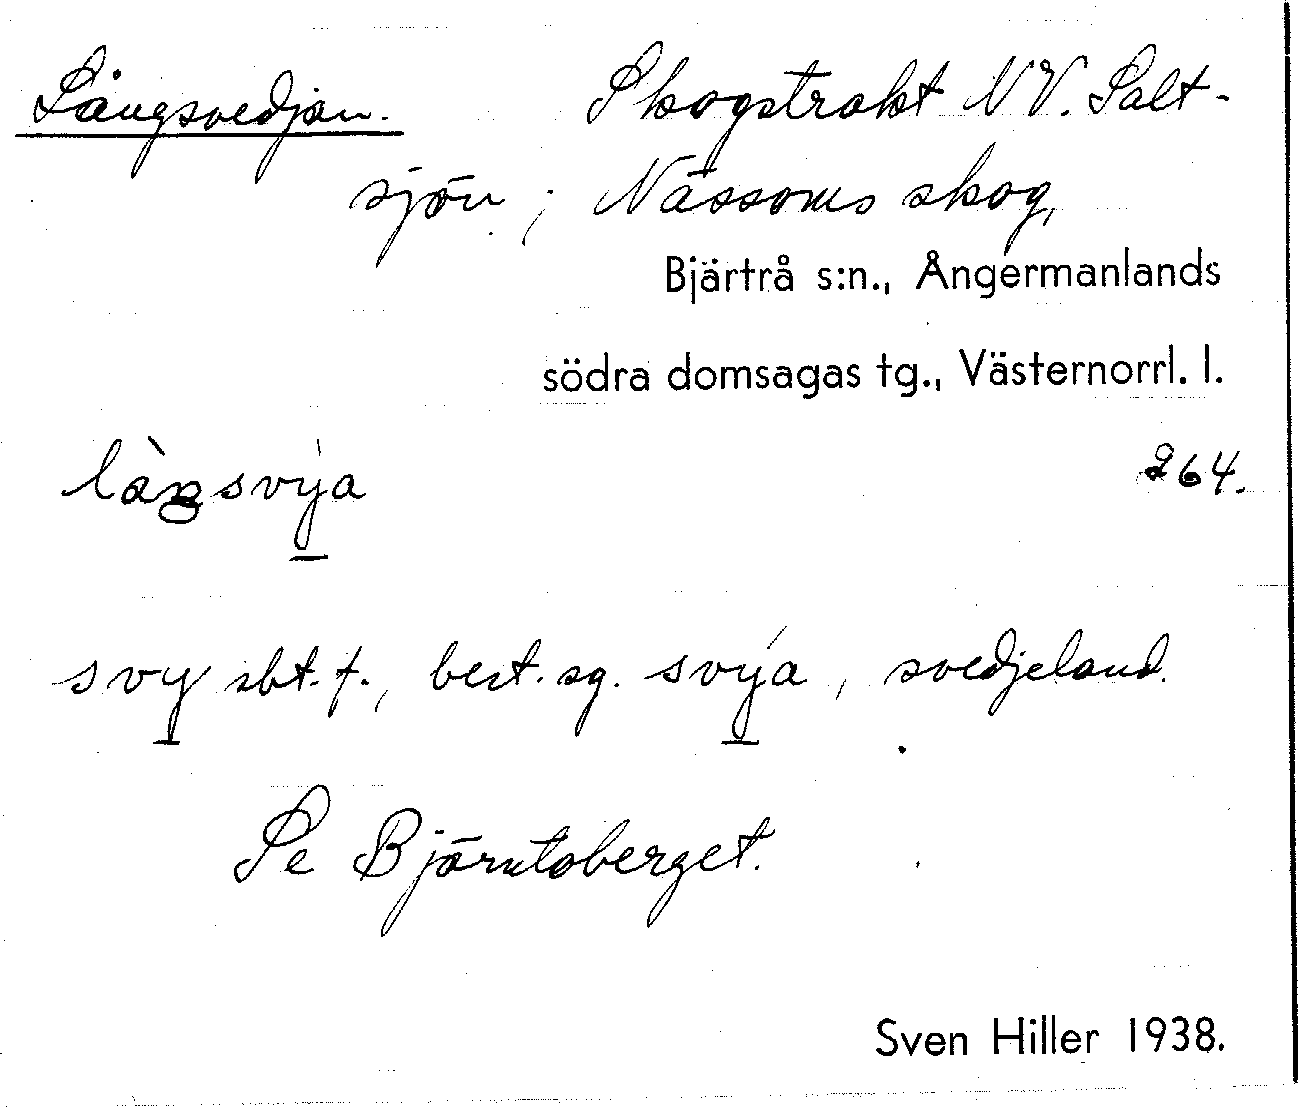 Långsvedjan. Skogstrakt NV. Salt-
sjön; Nässoms skog,
Bjärtrå s:n., Ångermanlands
södra domsagas tg., Västernorrl. l.
làŋsvýa 264.
svy sbt. f., best. sg. svýa, svedjeland.
Se Björntoberget.
Sven Hiller 1938.